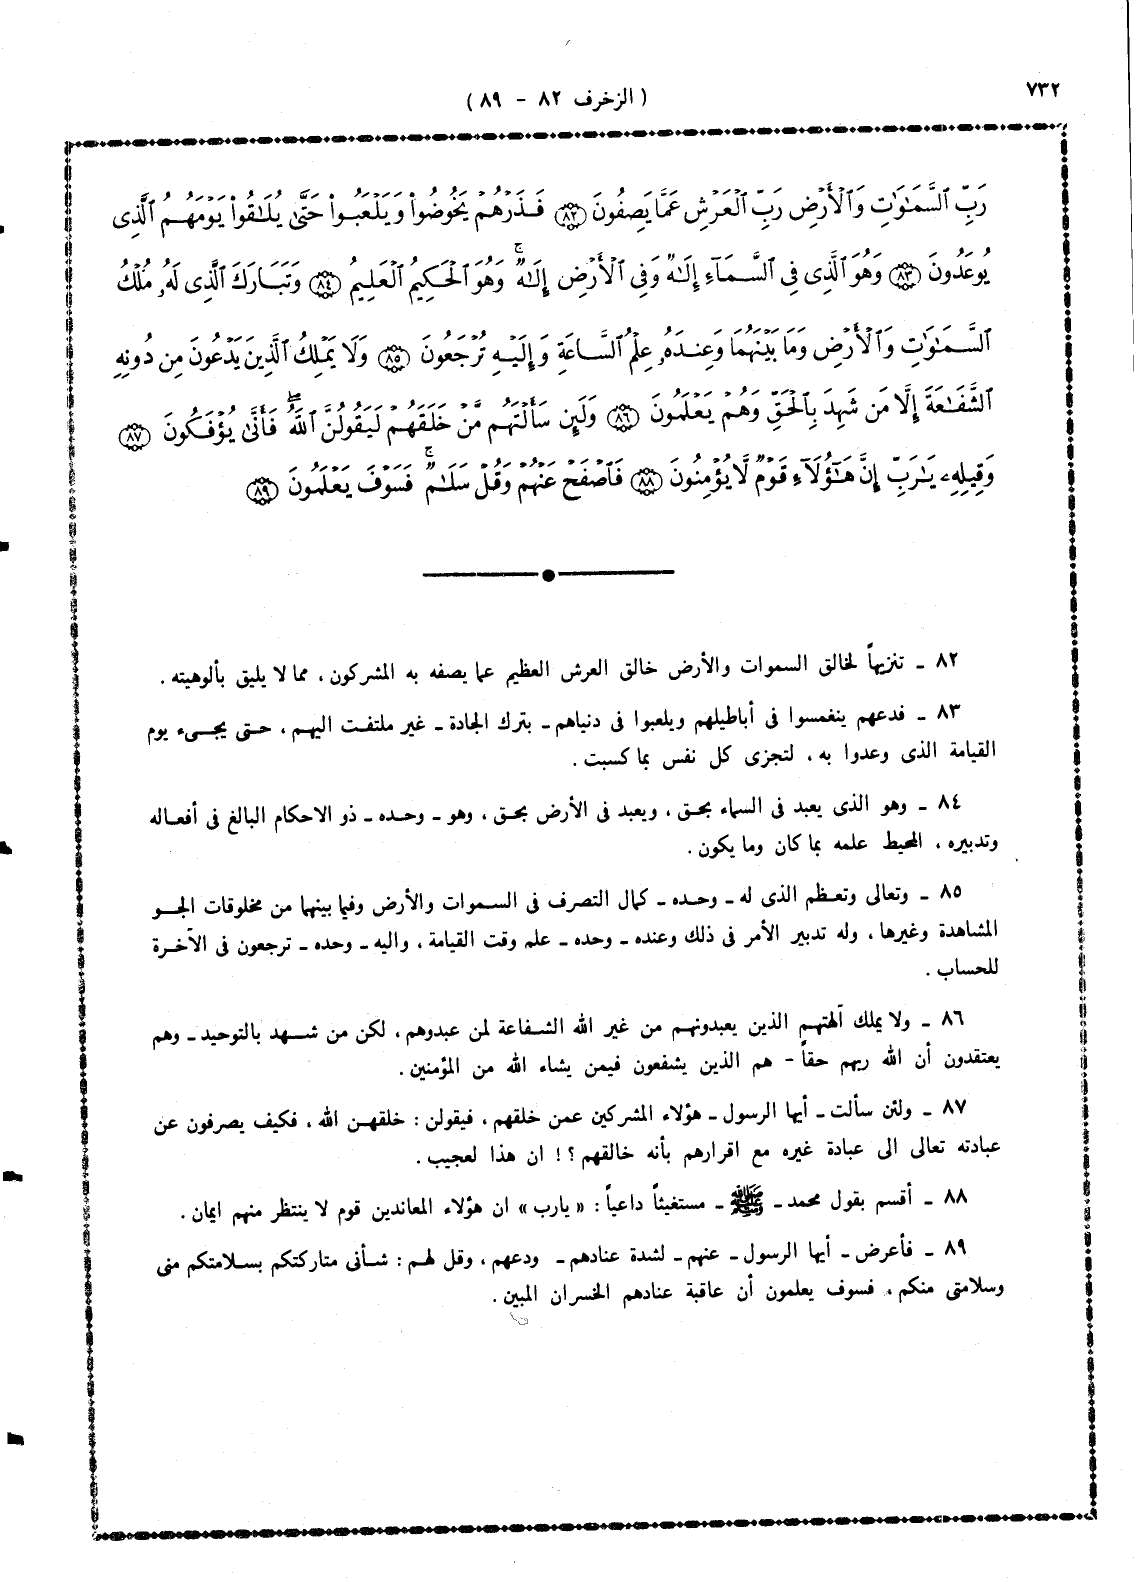 ٧٣٢
( الزخرف ٨٢ - ٨٩ )
رَبِّ ٱلسَّمَـٰوَٰتِ وَٱلْأَرْضِ رَبِّ ٱلْعَرْشِ عَمَّا يَصِفُونَ ۝٨٢ فَذَرْهُمْ يَخُوضُوا۟ وَيَلْعَبُوا۟ حَتَّىٰ يُلَـٰقُوا۟ يَوْمَهُمُ ٱلَّذِى
يُوعَدُونَ ۝٨٣ وَهُوَ ٱلَّذِى فِى ٱلسَّمَآءِ إِلَـٰهٌ وَفِى ٱلْأَرْضِ إِلَـٰهٌ ۚ وَهُوَ ٱلْحَكِيمُ ٱلْعَلِيمُ ۝٨٤ وَتَبَارَكَ ٱلَّذِى لَهُۥ مُلْكُ
ٱلسَّمَـٰوَٰتِ وَٱلْأَرْضِ وَمَا بَيْنَهُمَا وَعِندَهُۥ عِلْمُ ٱلسَّاعَةِ وَإِلَيْهِ تُرْجَعُونَ ۝٨٥ وَلَا يَمْلِكُ ٱلَّذِينَ يَدْعُونَ مِن دُونِهِ
ٱلشَّفَـٰعَةَ إِلَّا مَن شَهِدَ بِٱلْحَقِّ وَهُمْ يَعْلَمُونَ ۝٨٦ وَلَئِن سَأَلْتَهُم مَّنْ خَلَقَهُمْ لَيَقُولُنَّ ٱللَّهُ ۖ فَأَنَّىٰ يُؤْفَكُونَ ۝٨٧
وَقِيلِهِۦ يَـٰرَبِّ إِنَّ هَـٰٓؤُلَآءِ قَوْمٌ لَّا يُؤْمِنُونَ ۝٨٨ فَٱصْفَحْ عَنْهُمْ وَقُلْ سَلَـٰمٌ ۚ فَسَوْفَ يَعْلَمُونَ ۝٨٩
٨٢ ـ تنزيهاً لخالق السموات والأرض خالق العرش العظيم عما يصفه به المشركون ، مما لا يليق بألوهيته .
٨٣ ـ فدعهم ينغمسوا فى أباطيلهم ويلعبوا فى دنياهم ـ بترك الجادة ـ غير ملتفت اليهم ، حتى يجىء يوم
القيامة الذى وعدوا به ، لتجزى كل نفس بما كسبت .
٨٤ ـ وهو الذى يعبد فى السماء بحق ، ويعبد فى الأرض بحق ، وهو ـ وحده ـ ذو الاحكام البالغ فى أفعاله
وتدبيره ، المحيط علمه بما كان وما يكون .
٨٥ ـ وتعالى وتعظم الذى له ـ وحده ـ كمال التصرف فى السموات والأرض وفيما بينهما من مخلوقات الجو
المشاهدة وغيرها ، وله تدبير الأمر فى ذلك وعنده ـ وحده ـ علم وقت القيامة ، واليه ـ وحده ـ ترجعون فى الآخرة
للحساب .
٨٦ ـ ولا يملك آلهتهم الذين يعبدونهم من غير الله الشفاعة لمن عبدوهم ، لكن من شهد بالتوحيد ـ وهم
يعتقدون أن الله ربهم حقاً - هم الذين يشفعون فيمن يشاء الله من المؤمنين .
٨٧ ـ ولئن سألت ـ أيها الرسول ـ هؤلاء المشركين عمن خلقهم ، فيقولن : خلقهن الله ، فكيف يصرفون عن
عبادته تعالى الى عبادة غيره مع اقرارهم بأنه خالقهم ؟ ! ان هذا لعجيب .
٨٨ ـ أقسم بقول محمد ـ ﷺ ـ مستغيثاً داعياً : « يارب » ان هؤلاء المعاندين قوم لا ينتظر منهم ايمان .
٨٩ ـ فأعرض ـ أيها الرسول ـ عنهم ـ لشدة عنادهم ـ ودعهم ، وقل لهم : شأنى متاركتكم بسلامتكم منى
وسلامتى منكم ، فسوف يعلمون أن عاقبة عنادهم الخسران المبين .